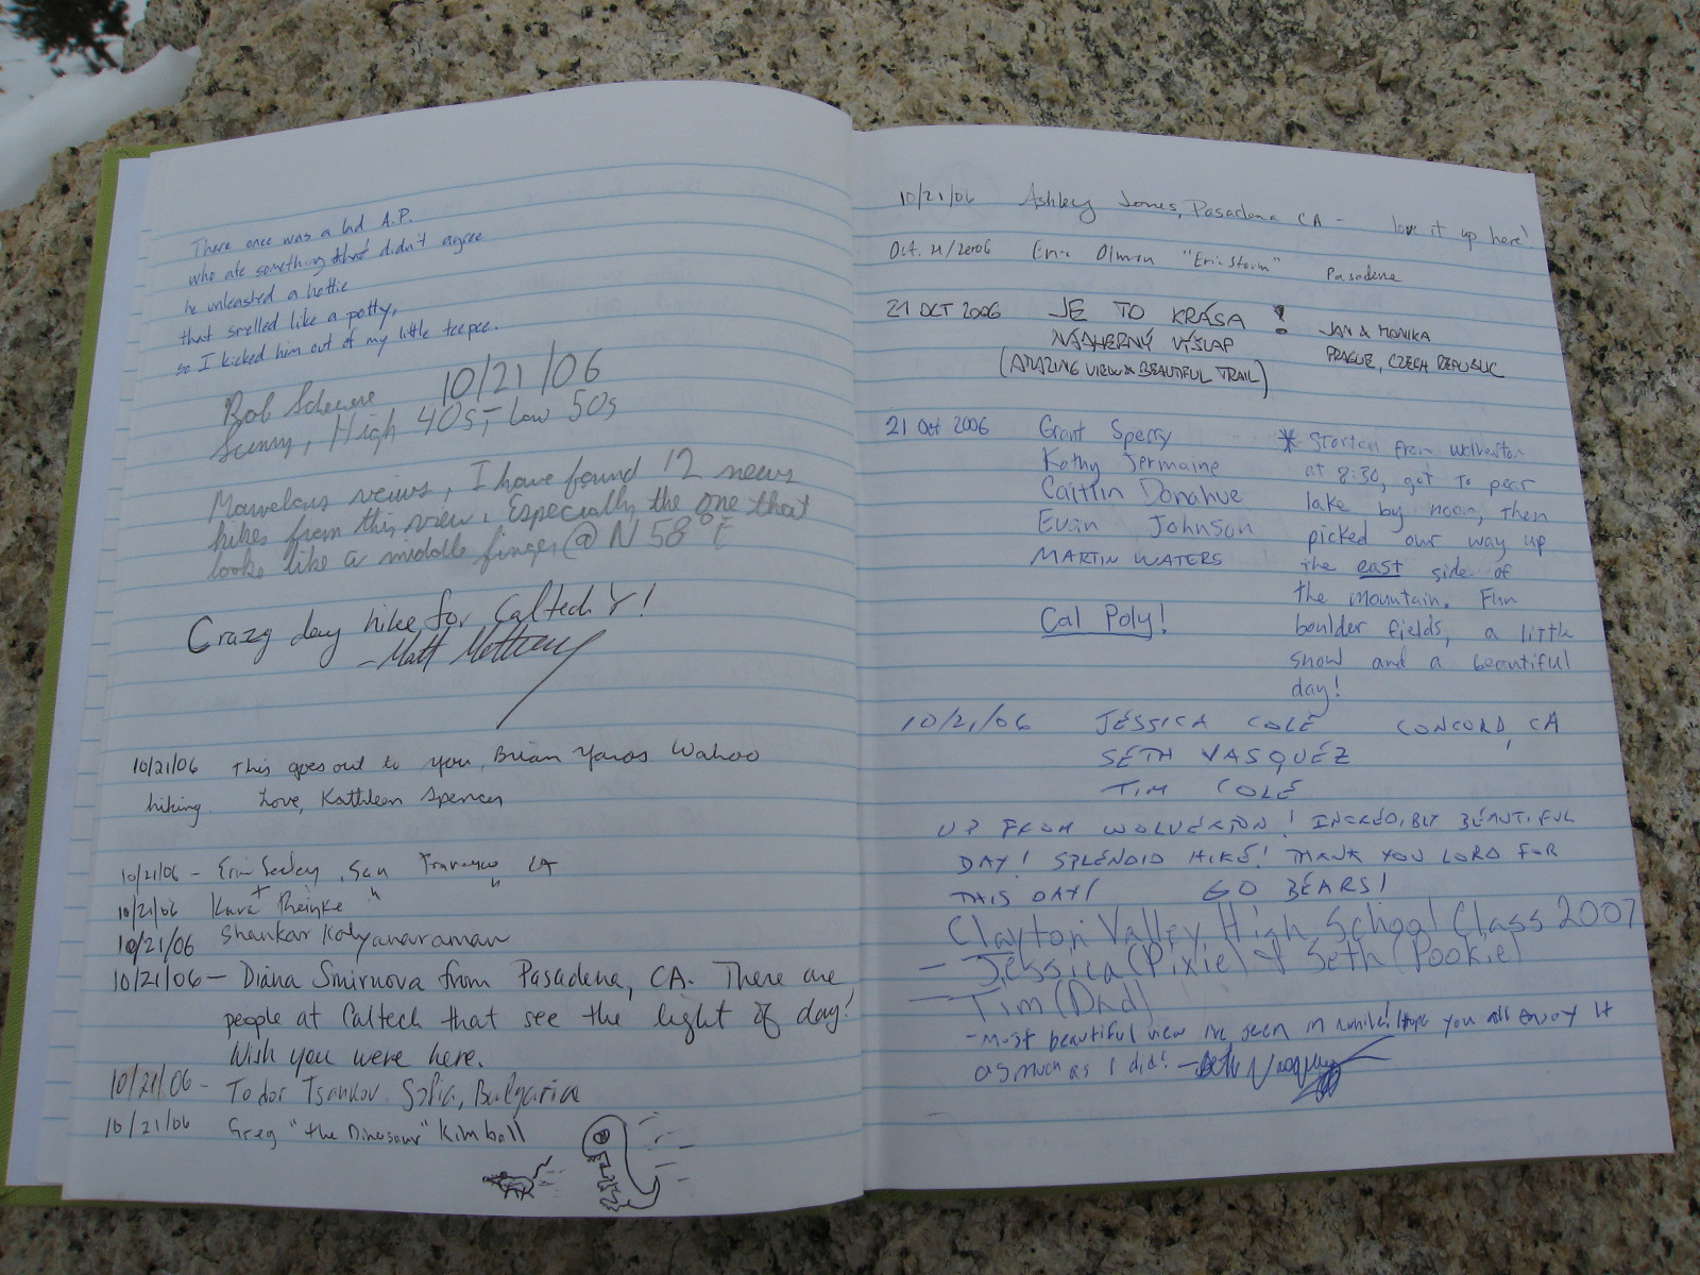 There once was a lad A.P.
who ate something that didn't agree
he unleashed a hottie
that smelled like a potty,
so I kicked him out of my little teepee.
Bob 10/21/06
Sunny, High 40s - Low 50s
Marvelous views, I have found 12 news
hikes from this view. Especially the one that
looks like a middle finger @ N 58° E
Crazy day hike for Caltech Y!
- Matt
10/21/06 This goes out to you, Brian Yaros Wahoo
hiking. Love, Kathleen Spencer
10/21/06 - Erin Seeley, San Francisco CA
10/21/06 Kara + Reinke " "
10/21/06 Shankar Kalyanaraman
10/21/06 - Diana Smirnova from Pasadena, CA. There are
people at Caltech that see the light of day!
Wish you were here.
10/21/06 - Todor Tsankov Sofia, Bulgaria
10/21/06 Greg "the Dinosaur" Kimball
10/21/06 Ashley Jones, Pasadena CA - love it up here!
Oct. 21/2006 Eric Olman "Eric Storm" Pasadena
21 OCT 2006 JE TO KRÁSA !
NÁDHERNÝ VÝŠLAP
(AMAZING VIEW & BEAUTIFUL TRAIL)
JAN & MONIKA
PRAGUE, CZECH REPUBLIC
21 Oct 2006 Grant Sperry
Kathy Jermaine
Caitlin Donahue
Evan Johnson
MARTIN WATERS
Cal Poly!
* Started from Wolverton
at 8:30, got to pear
lake by noon, then
picked our way up
the east side of
the mountain. Fun
boulder fields, a little
snow and a beautiful
day!
10/21/06 JESSICA COLE CONCORD, CA
SETH VASQUEZ
TIM COLE
UP FROM WOLVERTON! INCREDIBLY BEAUTIFUL
DAY! SPLENDID HIKE! THANK YOU LORD FOR
THIS DAY! GO BEARS!
Clayton Valley High School Class 2007
- Jessica (Pixie) & Seth (Pookie)
- Tim (Dad)
- Most beautiful view I've seen in Hope you all enjoy it
as much as I did! - Seth Vasquez